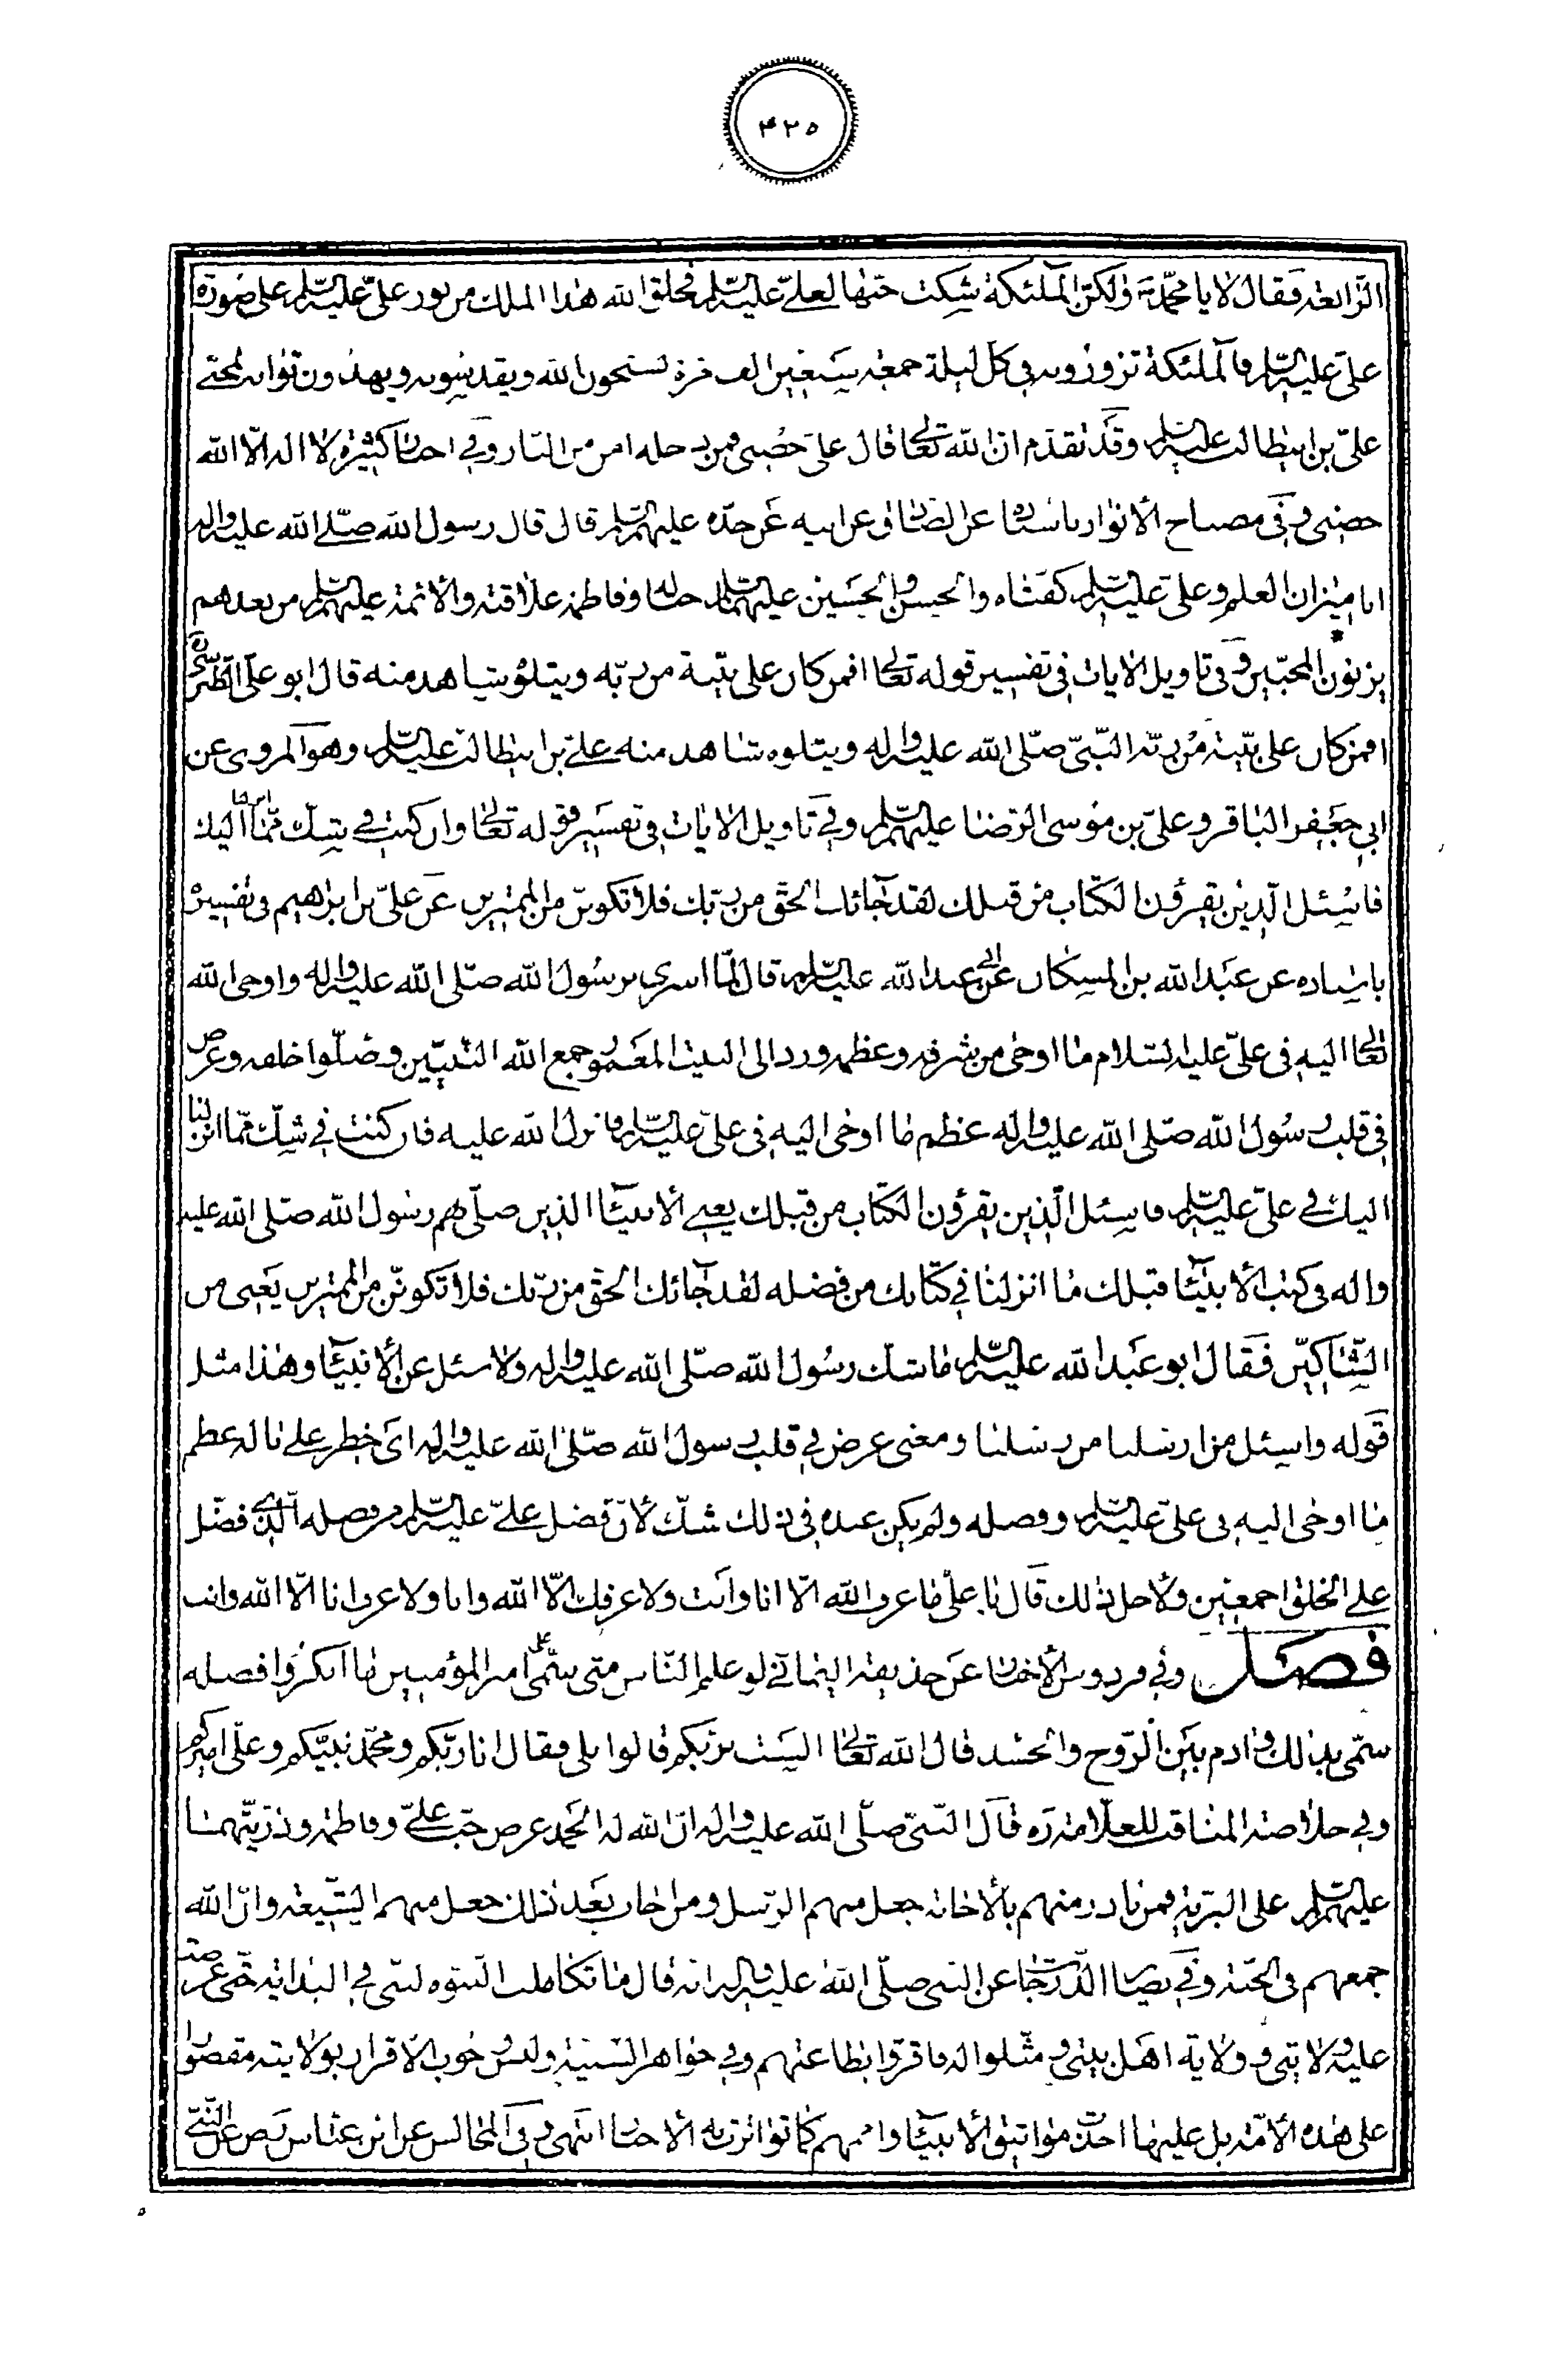 ٤٢٥
الرابعة فقال لا يا محمد ولكن الملئكة شكت حبها لعلي عليه السلم فخلق الله هذا الملك من نور علي عليه السلم على صورة
علي عليه السلم فالملئكة تزوره في كل ليلة جمعة سبعين الف مرة يسبحون الله ويقدسونه ويهدون ثوابه لمحبي
علي بن ابيطالب عليه السلم وقد تقدم ان الله تعالى قال علي حصني فمن دخله امن من النار وفي اخبار كثيرة لا اله الا الله
حصني وفي مصباح الأنوار باسناده عن الصادق عن ابيه عن جده عليهم السلم قال قال رسول الله صلى الله عليه واله
انا ميزان العلم وعلي عليه السلم كفتاه والحسن والحسين عليهما السلم حباله وفاطمة علاقته والأئمة عليهم السلم من بعدهم
يزنون المحبين وفي تاويل الايات في تفسير قوله تعالى افمن كان على بينة من ربه ويتلوه شاهد منه قال ابو علي الطبرسي ره
افمن كان على بينة من ربه النبي صلى الله عليه واله ويتلوه شاهد منه علي بن ابيطالب عليه السلم وهو المروي عن
ابي جعفر الباقر وعلي بن موسى الرضا عليهم السلم وفي تاويل الايات في تفسير قوله تعالى وان كنت في شك مما انزلنا اليك
فاسئل الذين يقرؤن الكتاب من قبلك لقد جائك الحق من ربك فلا تكونن من الممترين عن علي بن ابراهيم في تفسيره
باسناده عن عبد الله بن المسكان عن ابي عبد الله عليه السلم قال لما اسري برسول الله صلى الله عليه واله واوحى الله
تعالى اليه في علي عليه السلام ما اوحى من شرفه وعظمه ورد الى البيت المعمور جمع الله النبيين وصلوا خلفه وعرض
في قلب رسول الله صلى الله عليه واله عظم ما اوحى اليه في علي عليه السلم فانزل الله عليه فان كنت في شك مما انزلنا
اليك في علي عليه السلم فاسئل الذين يقرؤن الكتاب من قبلك يعني الانبيآء الذين صلى بهم رسول الله صلى الله عليه
واله في كتب الأنبيآء قبلك ما انزلنا في كتابك من فضله لقد جآئك الحق من ربك فلا تكونن من الممترين يعني من
الشاكين فقال ابو عبد الله عليه السلم ما شك رسول الله صلى الله عليه واله ولا سئل عن الأنبيآء وهذا مثل
قوله واسئل من ارسلنا من رسلنا ومعنى عرض في قلب رسول الله صلى الله عليه واله اي خطر على باله عظم
ما اوحى اليه في علي عليه السلم وفضله ولم يكن عنده في ذلك شك لأن فضل علي عليه السلم من فضله الذي فضل
على الخلق اجمعين ولأجل ذلك قال يا علي ما عرف الله الا انا وانت ولا عرفك الا الله وانا ولا عرف انا الا الله وانت
فصل وفي فردوس الأخبار عن حذيفة اليماني لو علم الناس متى سمى علي امير المؤمنين ما انكروا فضله
سمي بذلك وادم بين الروح والجسد قال الله تعالى الست بربكم قالوا بلى فقال انا ربكم ومحمد نبيكم وعلي اميركم
وفي خلاصة المناقب للعلامة ره قال النبي صلى الله عليه واله ان الله له الحمد عرض حب علي وفاطمة وذريتهما
عليهم السلم على البرية فمن بادر منهم بالأجابة جعل منهم الرسل ومن اجاب بعد ذلك جعل منهم الشيعة وان الله
جمعهم في الجنة وفي بصائر الدرجات عن النبي صلى الله عليه واله انه قال ما تكاملت النبوة لنبي في البداية حتى عرضت
عليه ولايتي وولاية اهل بيتي ومثلوا له فاقروا بطاعتهم وفي جواهر السنية وليس وجوب الاقرار بولايته مقصورا
على هذه الأمة بل عليها اخذ مواثيق الأنبيآء واممهم كما تواترت به الأخبار انتهى وفي المجالس عن ابن عباس عن النبي